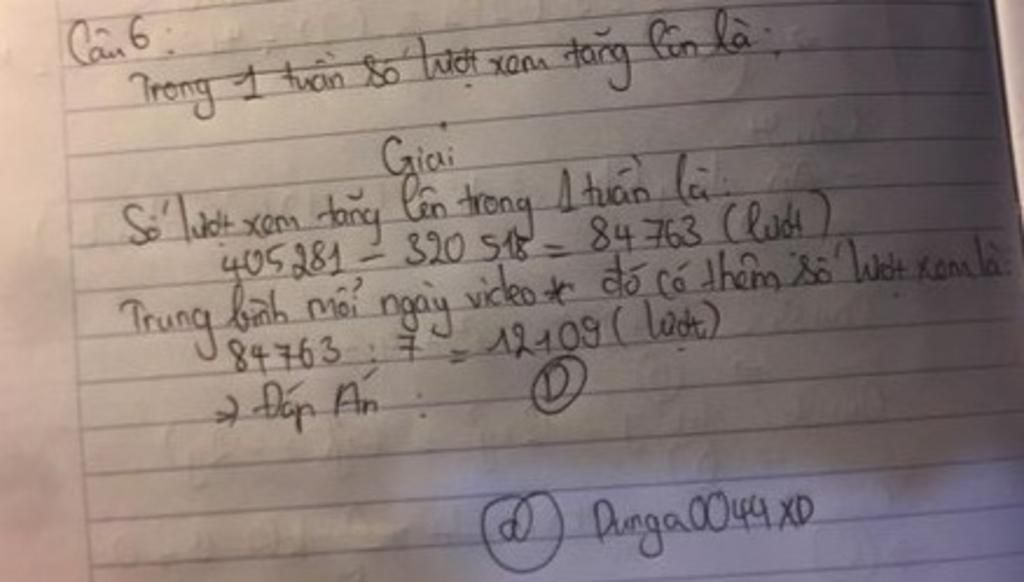 Câu 6:
Trong 1 tuần số lượt xem tăng lên là:
Giải
Số lượt xem tăng lên trong 1 tuần là:
405281 - 320518 = 84763 (lượt)
Trung bình mỗi ngày video đó có thêm số lượt xem là:
84763 : 7 = 12109 (lượt)
→ Đáp Án : D
@ Dunga0044XD